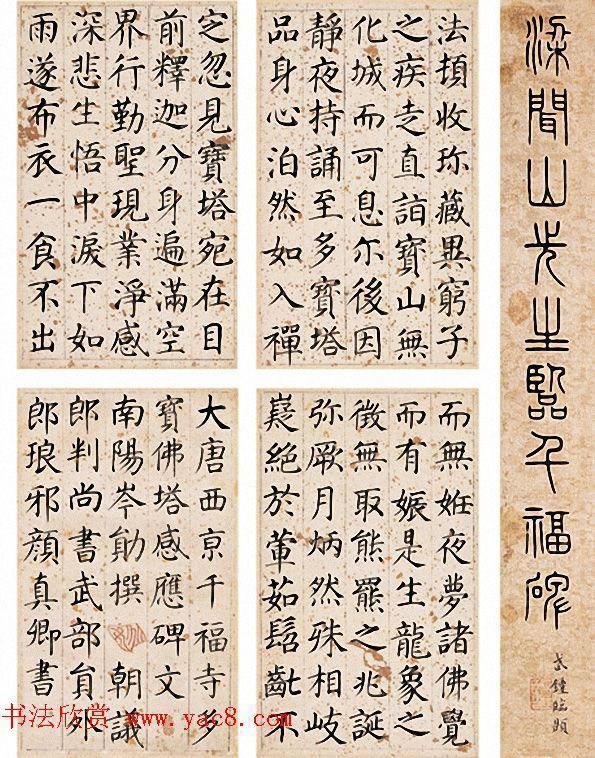 梁聞山先生臨千福碑
大唐西亰千福寺多
寶佛塔感應碑文
南陽岑勛撰 朝議
郎判尚書武部員外
郎琅邪顏真卿書
而無姙夜夢諸佛覺
而有娠是生龍象之
徵無取熊羆之兆誕
弥厥月炳然殊相岐
嶷絕於葷茹髫齔不
法頂收珎藏異窮子
之疾走直詣寶山無
化城而可息尔後因
靜夜持誦至多寶塔
品身心泊然如入禪
定忽見寶塔宛在目
前釋迦分身遍滿空
界行勤聖現業淨感
深悲生悟中淚下如
雨遂布衣一食不出
书法欣赏 www.yac8.com